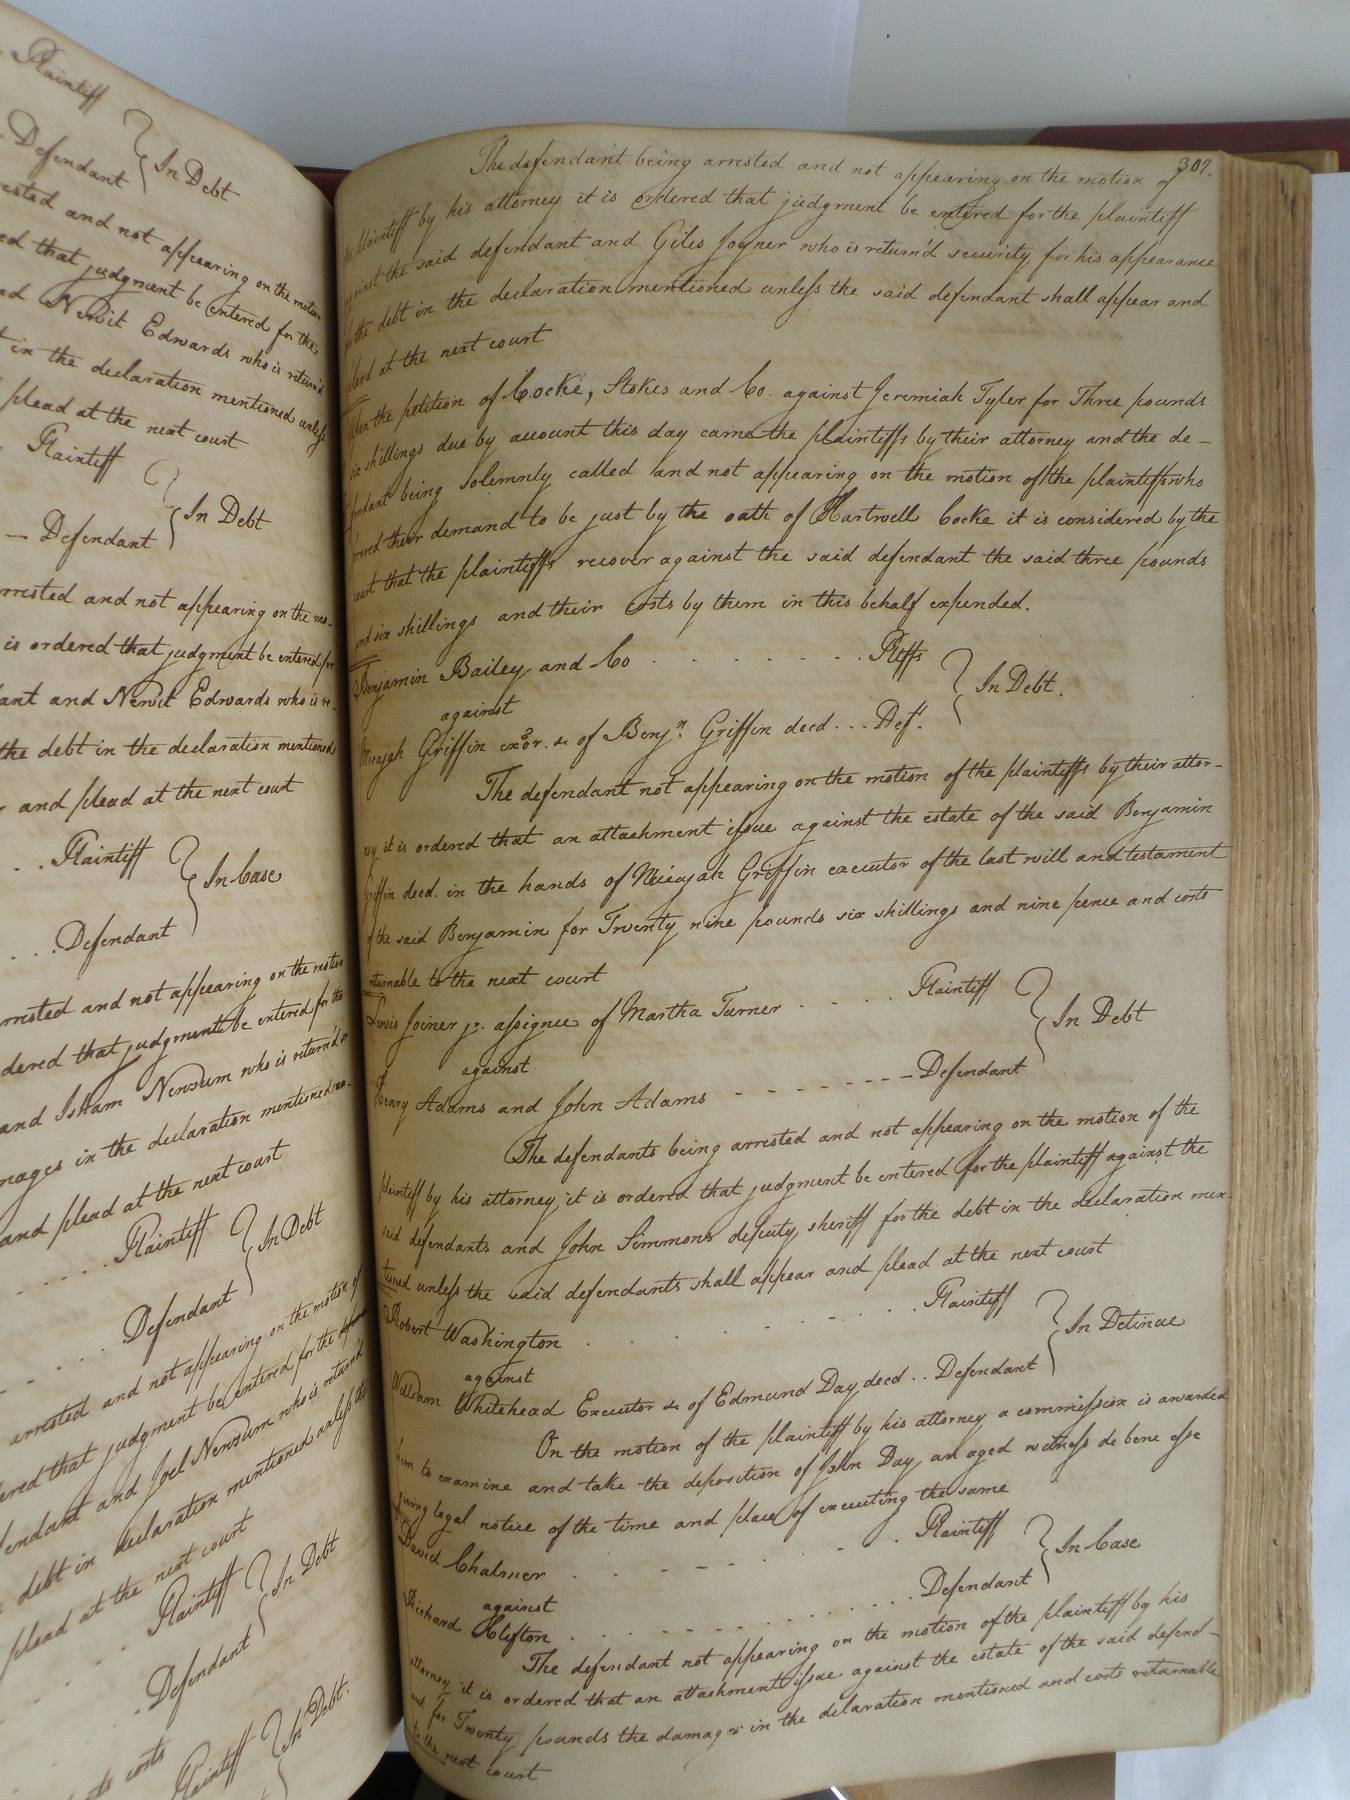 Plaintiff
Defendant
In Debt
rested and not appearing on the motion
ed that judgment be entered for the
nd Newit Edwards who is return'd
t in the declaration mentioned unless
plead at the next court
Plaintiff
In Debt
— Defendant
rrested and not appearing on the mo-
is ordered that judgment be entered for
ant and Newit Edwards who is re-
the debt in the declaration mentioned
r and plead at the next court
. . . Plaintiff
In Case
. . . Defendant
rrested and not appearing on the motion
dered that judgment be entered for the
and Isham Newsum who is return'd
mages in the declaration mentioned
and plead at the next court
. . . . . Plaintiff
In Debt
. . . . Defendant
arrested and not appearing on the motion of
ered that judgment be entered for the
fendant and Joel Newsum who is return'd
debt in declaration mentioned unless the
plead at the next court
Plaintiff
In Debt
Defendant
costs
Plaintiff
In Debt.
307.
The defendant being arrested and not appearing on the motion of
the plaintiff by his attorney it is ordered that judgment be entered for the plaintiff
against the said defendant and Giles Joyner who is return'd security for his appearance
for the debt in the declaration mentioned unless the said defendant shall appear and
plead at the next court
Upon the petition of Cocke, Stokes and Co. against Jeremiah Tyler for Three pounds
six shillings due by account this day came the plaintiffs by their attorney and the de-
fendant being solemnly called and not appearing on the motion of the plaintiffs who
proved their demand to be just by the oath of Hartwell Cocke it is considered by the
court that the plaintiffs recover against the said defendant the said three pounds
and six shillings and their costs by them in this behalf expended.
Benjamin Bailey and Co . . . . . . . Pltffs
In Debt.
against
Micajah Griffin exor. &c of Benjn. Griffin decd. . . . Deft.
The defendant not appearing on the motion of the plaintiffs by their attor-
ney it is ordered that an attachment issue against the estate of the said Benjamin
Griffin decd. in the hands of Micajah Griffin executor of the last will and testament
of the said Benjamin for Twenty nine pounds six shillings and nine pence and costs
returnable to the next court
Lewis Joiner jr. assignee of Martha Turner . . . . . Plaintiff
In Debt
against
Henry Adams and John Adams - - - - - - - Defendant
The defendants being arrested and not appearing on the motion of the
plaintiff by his attorney it is ordered that judgment be entered for the plaintiff against the
said defendants and John Simmons deputy sheriff for the debt in the declaration men-
tioned unless the said defendants shall appear and plead at the next court
Robert Washington . . . . . . . Plaintiff
In Detinue
against
William Whitehead Executor &c of Edmund Day decd . . Defendant
On the motion of the plaintiff by his attorney a commission is awarded
him to examine and take the deposition of John Day an aged witness de bene esse
giving legal notice of the time and place of executing the same
David Chalmer . . . . . . . Plaintiff
In Case
against
Richard Clifton . . . . . . . . . . Defendant
The defendant not appearing on the motion of the plaintiff by his
attorney it is ordered that an attachment issue against the estate of the said defend-
ant for Twenty pounds the damages in the declaration mentioned and costs returnable
to the next court